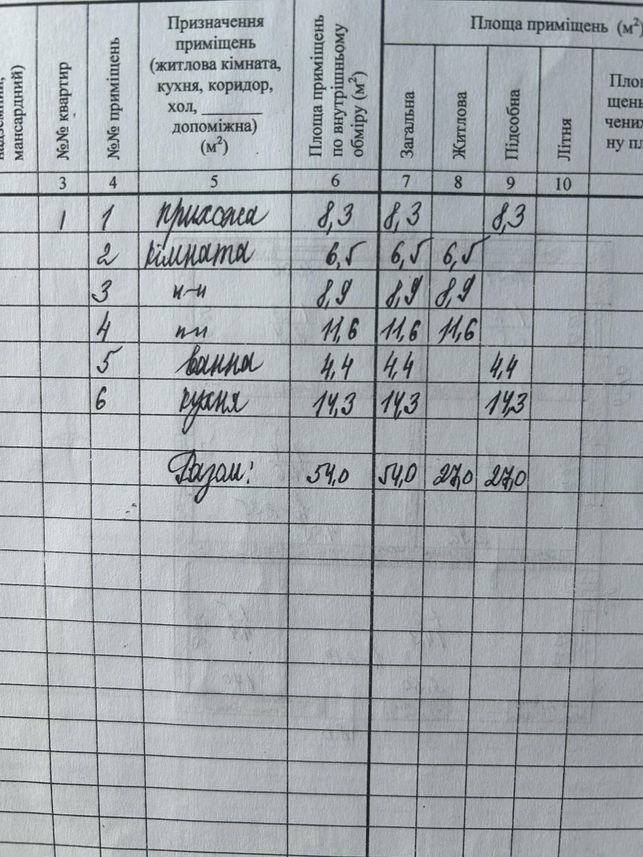 надземний,
мансардний)
№№ квартир
№№ приміщень
Призначення
приміщень
(житлова кімната,
кухня, коридор,
хол, _______
допоміжна)
(м²)
Площа приміщень
по внутрішньому
обміру (м²)
Площа приміщень (м²)
Загальна
Житлова
Підсобна
Літня
3 4 5 6 7 8 9 10
1 1 прихожа 8,3 8,3 8,3
2 кімната 6,5 6,5 6,5
3 п-п 8,9 8,9 8,9
4 п-п 11,6 11,6 11,6
5 ванна 4,4 4,4 4,4
6 кухня 14,3 14,3 14,3
Разом: 54,0 54,0 27,0 27,0